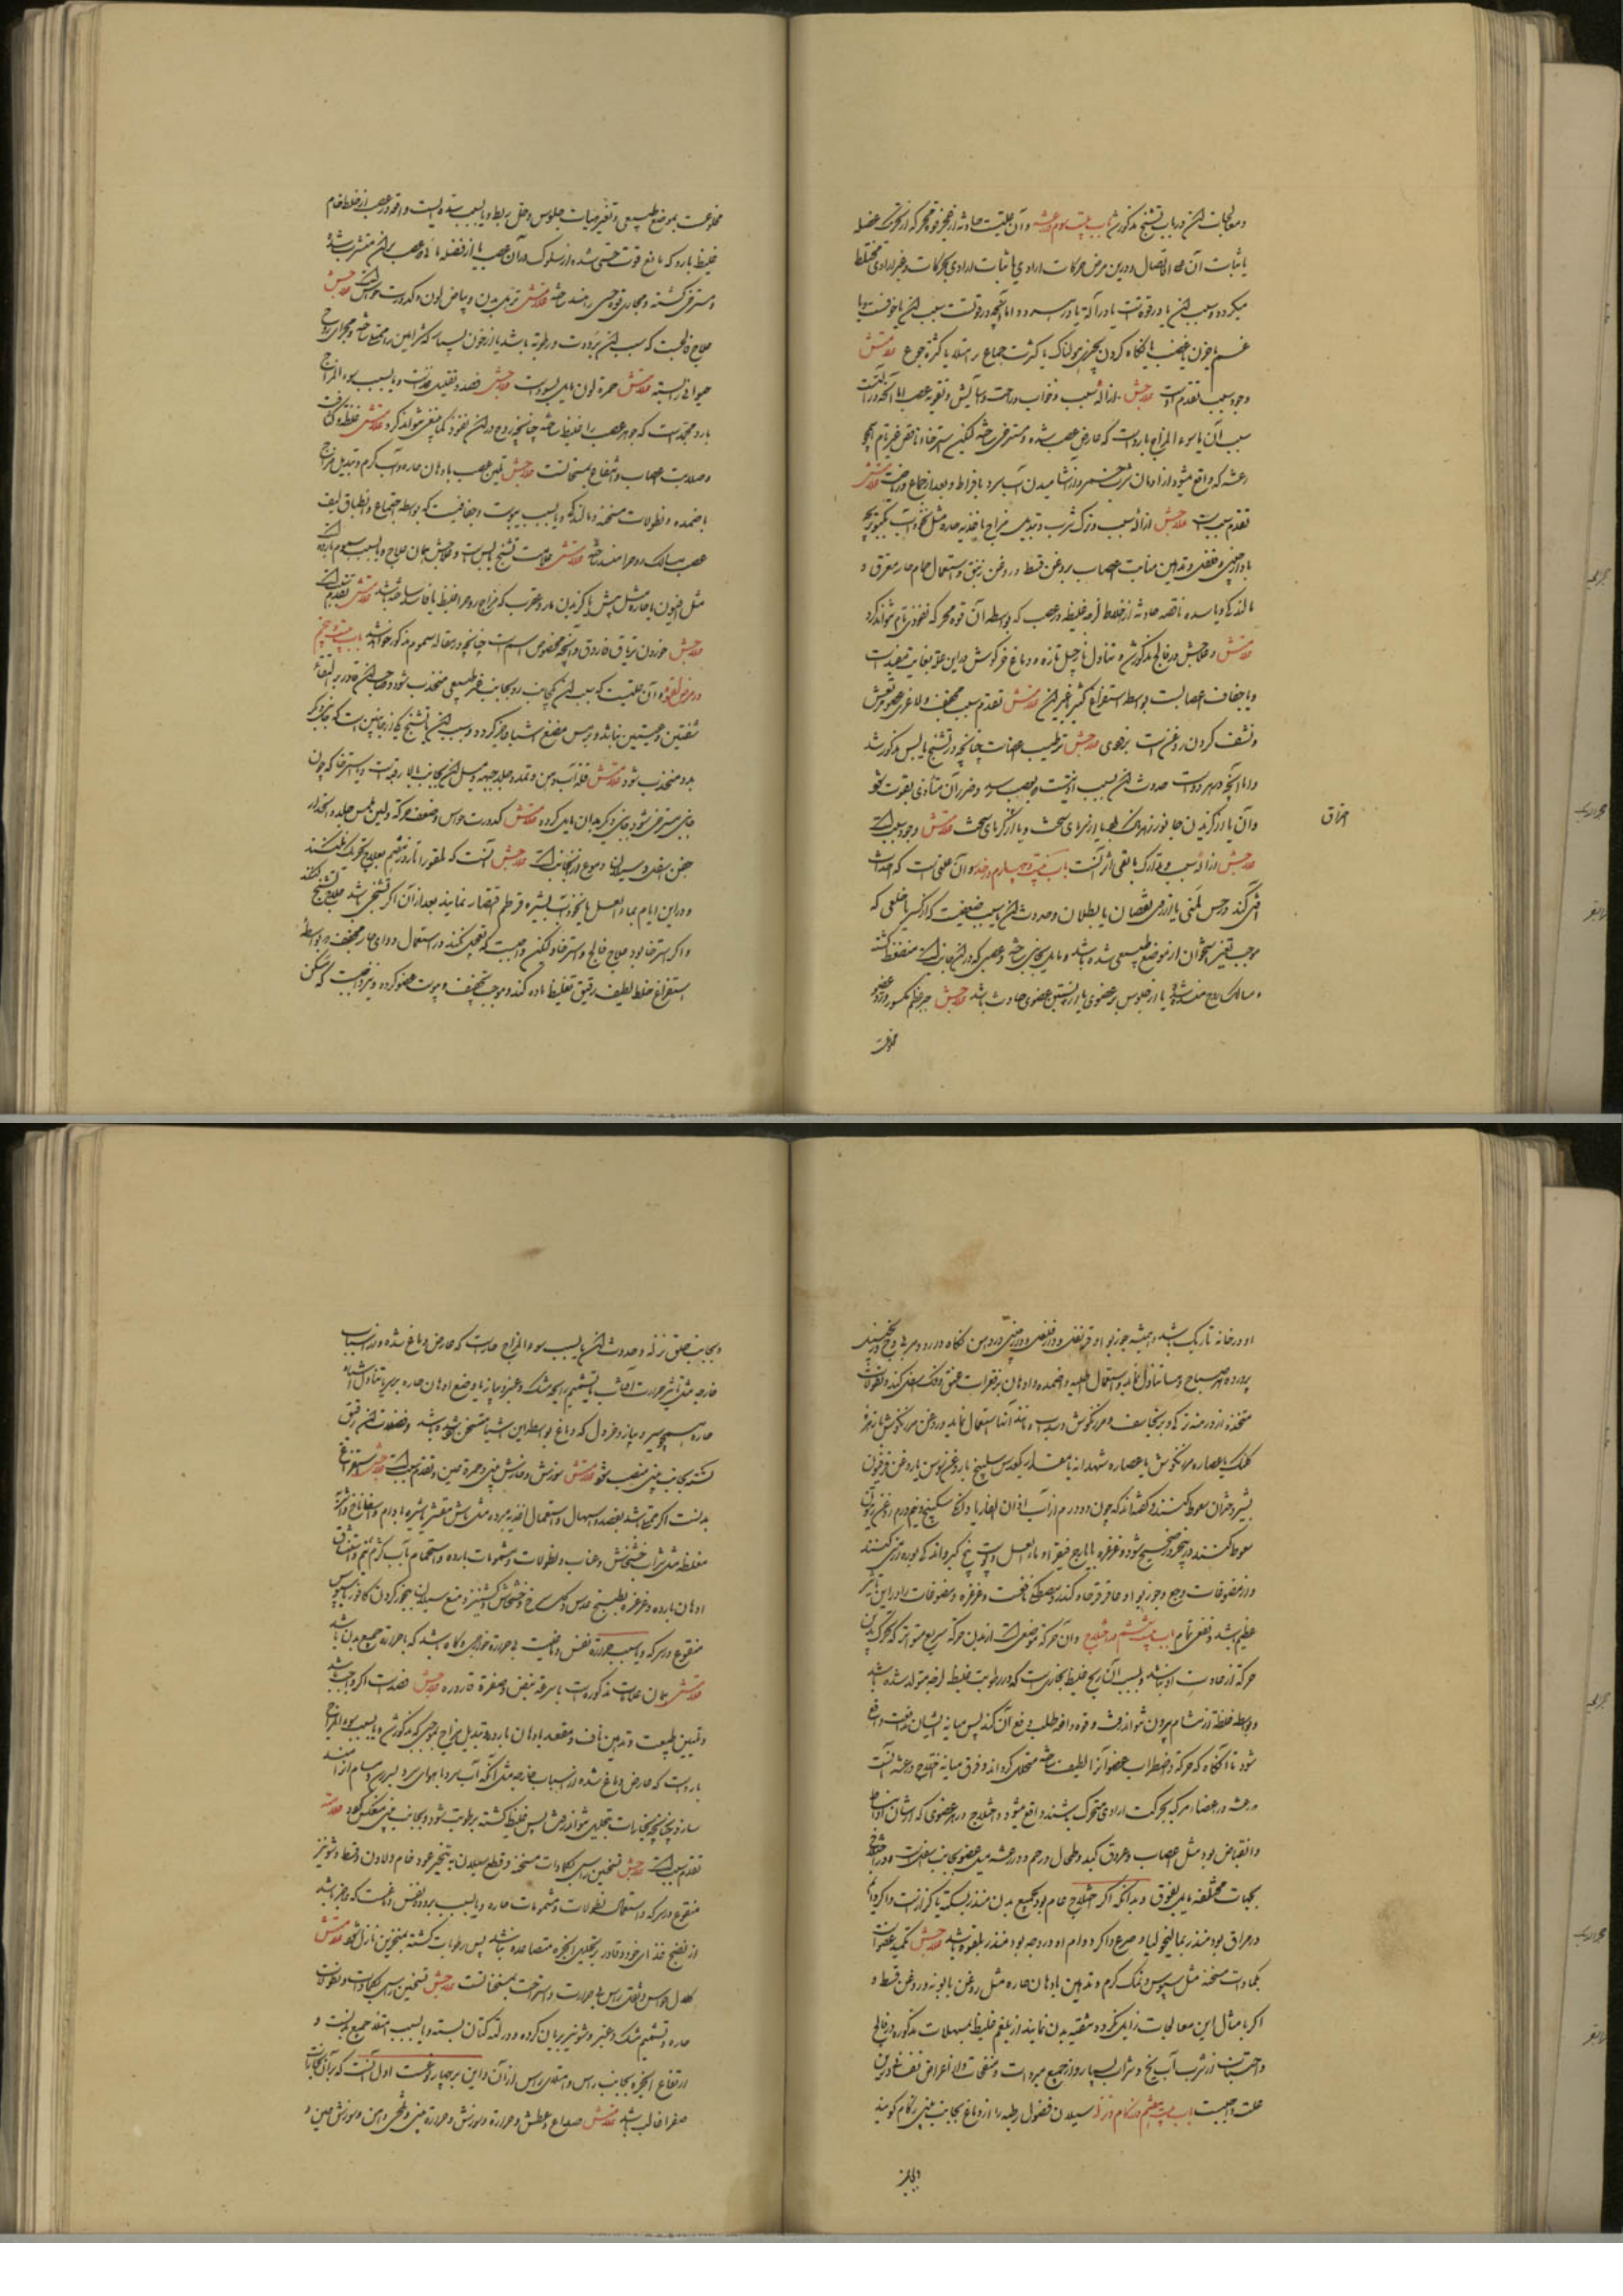 و معالجات این در باب تشنج مذکور شد باب بیست و سوم در رعشه و آن علتیست حادثه از عجز قوه محرکه از تحریک عضله
یا ثبات آن علی الاتصال و درین مرض حرکات ارادی یا ثبات ارادی بحرکات غیر ارادی مختلط
میگردد و سبب این یا در قوتست یا در آله یا در هر دو اما آنچه در قوتست سبب این یا خوفست یا
غم یا حزن یا غضب یا نگاه کردن بچیزی هولناک یا کثرت جماع بر امتلا یا کثرة جوع علامتش
وجود سبب تقدم اوست علاجش ازالهٔ سبب و خواب و راحت و آسایش و تقویه عصب اما آنکه در آلتست
سبب آن یا سوء المزاج باردست که عارض عصب شده و مسترخی ساخته لیکن استرخاء ناقص غیر تام همچو
رعشه که واقع میشود از ادمان شرب خمر و از آشامیدن آب سرد بافراط و بعد از جماع و ریاضت علامتش
تقدم سببست علاجش ازالهٔ سبب و ترک شرب و تبدیل مزاج باغذیه حاره مثل نخودآب کبوتر بچه
با دارچینی و فلفل و تدهین منابت اعصاب بروغن قسط و روغن زنبق و استعمال حمام حار معرق و
مانند آن و یا سده ناقصه حادثه از خلط لزج غلیظ در عصب که بواسطه آن قوه محرکه نفوذ تام نتواند کرد
علامتش و علاجش در فالج مذکور شد و تناول نارجیل تازه و دماغ خرگوش درین علت بغایت مفیدست
و یا جفاف اعصابست بواسطه استفراغ کثیر یا غیر این علامتش تقدم سبب مجفف و لاغری عضو مرتعش
و نشف کردن روغن است بزودی علاجش ترطیب اعصابست چنانچه در تشنج یابس مذکور شد
و اما آنچه در هر دوست حدوث این بسبب اذیتست که بعصب رسد و ضرر آن متأدی بقوت شود
و آن یا از گزیدن جانور زهردار بود یا از سرمای سخت و یا از گرمای سخت علامتش وجود سبب است
علاجش ازالهٔ سبب و تدارک باقی اثر آنست باب بیست و چهارم در خدر و آن علتی است که احداث
آفتی کند در حس لمسی یا از روی نقصان یا بطلان و حدوث این یا بسبب ضغطیست که از کسر یا خلعی که
موجب تغییر استخوان از موضع طبیعی شده باشد و مایل بجانبی شود و عصبی که در این جانب است منضغط گشته
و مسالک روح منسد شود یا از جلوس بر عضوی یا از بستن عضوی حادث باشد علاجش جبر عظم مکسور و رد عضو
مخلوعست
احتراق
مخلوعست بموضع طبیعی و تغییر هیات جلوس و حل رباط و یا بسبب سده ایست واقع در عصب از خلط خام
غلیظ بارد که مانع قوت حسی شده از سلوک در آن عصب یا از فضله مائی در عصب بران منتشر شده
و مسترخی گشته و مجاری قوه حسی را منسد ساخته علامتش ترهل بدن و بیاض لون و کدورت حواس است علاجش
علاج فالجست که سبب این برودت و رطوبت باشد یا از خون بسیار که شرائین را ممتلی ساخته و مجرای روح
حیوانی را بسته علامتش حمرة لون مایل بسواد است علاجش فصد و تقلیل غذاست و یا بسبب سوء المزاج
بارد مجمدست که جوهر عصب را غلیظ ساخته چنانچه روح در این نفوذ کما ینبغی نتواند کرد علامتش غلظ و کثافت
و صلابت اعصاب و انتفاع بمسخنات است علاجش تلین عصب بادهان حاره و آب گرم و تبدیل مزاج
باضمده و نطولات مسخنه و مالیدن و یا بسبب یبوست و جفافیست که بواسطه اجتماع و انطباق لیف
عصب مسالک روح را منسد ساخته علامتش علامت تشنج یابس است و علاجش همان علاج و یا بسبب سموم بارده
مثل افیون یا حاره مثل بیش یا گزیدن مار و عقرب که مزاج روح را غلیظ یا فاسد ساخته باشد علامتش تقدم سبب است
علاجش خوردن تریاق فاروق و آنچه مخصوص اسم است چنانچه در مقاله سموم مذکور خواهد شد باب بیست و پنجم
در مرض لقوه و آن علتیست که بسبب آن یکجانب رو بجانب غیر طبیعی منجذب شود و صاحب آن قادر بر التقاء
شفتین و جفنین نباشد و برس مضغ اشیا دیگر گردد و سبب این یا تشنج یکی از جانبین است که جانب دیگر
بدو منجذب شود علامتش قلة آب دهن و تمدد جلد جبهه و میل این بجانب بالا رفته است و یا استرخا که چون
جانبی مسترخی شود جانب دیگر بدان مایل گردد علامتش کدورت حواس و ضعف حرکة و لین ملمس جلد و انحدار
جفن اسفل و سیلان دموع از آنجانب است علاجش آنست که لقوه را تا روز هفتم بعلاج تحریک نکنند
و در این ایام بماء العسل یا نخودآب بشیره قرطم اقتصار نمایند بعد از آن اگر تشنجی باشد علاج تشنج کنند
و اگر استرخا بود علاج فالج و استرخا و لیکن واجبست که تعجیل کنند در استعمال دوای حار مجفف که بواسطهٔ
استفراغ خلط لطیف رقیق تغلیظ ماده کند و موجب تجفیف و یبوست عضو گردد و نیز واجبست که مسکن
او در خانه تاریک باشد و همیشه جوزبوا و قرنفل و دارفلفل و دارچینی در دهن نگاه دارد
پرورده هر صباح و مسا تناول نماید و استعمال اطلیه و اضمده و ادهان بر فقرات عنق و فک اسفل کند و نطولات
متخذه از درمنه ترکی و برنجاسف و مرزنگوش و سداب و مانند آنها استعمال نماید و روغن مرزنگوش با زهره
کلنک یا عصاره مرزنگوش یا عصاره شهدانه یا مقدار یکعدس سلیخه با روغن سوسن یا روغن فرفیون
بشیر دختران سعوط کنند
سعوط کنند در منخر صحیح شود و غرغره بایارج فیقرا و ماء العسل و پوست بیخ کبر و اندکی بوره ارمنی کنند
و از مضوغات وج و جوزبوا و عاقرقرحا و کندر و مصطکی نافعست و غرغره و مضوغات را در این تاثیر
عظیم باشد و نفعی تمام باب بیست و ششم در اختلاج و آن حرکة موضعی است از بدن حرکة سریع متواتر که تحرک بدین
حرکة از عادت او نباشد و سبب آن ریح غلیظ بخاری است که در رطوبت غلیظ لزجه متولد شده باشد
و بواسطه غلظة از مسام بیرون نتواند رفت و قوه دافعه طلب دفع آن کند پس میانه ایشان تدافعت واقع
شود تا آنگاه که حرکة و اضطراب عضو آنرا لطیف ساخته متحلل گرداند و فرق میانه اختلاج و رعشه آنست که
رعشه در اعضا هر که بحرکت ارادی متحرک باشند واقع میشود و اختلاج در هر عضوی که از شان او انبساط
و انقباض بود مثل اعصاب و عروق کبد و طحال و رحم و در رعشه میل عضو بجانب سفلست و در اختلاج
بجهات مختلفه مایل بفوق و بدانکه اگر اختلاج عام بود بجمیع بدن منذر بسکته یا کزازست و اگر دائم
در مراق بود منذر بمالیخولیا و صرع و اگر دوام او در وجه بود منذر بلقوه باشد علاجش تکمید عضوست
بکمادات مسخنه مثل سبوس و نمک گرم و تدهین بادهان حاره مثل روغن بابونه و روغن قسط و
اگر بامثال این معالجات زایل نگردد تنقیه بدن نمایند از بلغم غلیظ بمسهلات مذکوره در فالج
و اجتناب از شرب آب یخ و شراب بسیار و از جمیع مبردات و منفخات و از اعراض نفسانی درین
علت واجبست باب بیست و هفتم در زکام و نزله سیلان فضول رطبه را از دماغ بجانب بینی زکام گویند
و بجانب
و بجانب حلق نزله و حدوث این یا بسبب سوء المزاج حارست که عارض دماغ شده و از اسباب
خارجه مثل تاثیر حرارت آفتاب یا تشمیم رایحه مشک و عنبر و پیاز یا وضع ادهان حاره بر سر یا تناول اشیاء
حاره همچو سیر و پیاز و خردل که دماغ بواسطه این اشیا متسخن شده باشد و فضلات این رقیق
گشته بجانب بینی منصب شود علامتش سوزش و خارش بینی و حمرة عین و تقدم سبب است علاجش استفراغ
بدنست اگر ممتلی باشد بفصد و اسهال و استعمال اغذیه مبرده مثل ماش مقشر با شیره بادام و اسفاناخ و اشربه
مغلظه مثل شراب خشخاش و عناب و نطولات و مشمومات بارده و استحمام بآب گرم نیم و استنشاق
ادهان بارده و غرغره بطبیخ عدس و گل سرخ و خشخاش و کشنیز و منع سیلان بتبخیر کردن کافور یا سبوس
منقوع در سرکه و یا بسبب حرارة نفس دماغیست بی حرارة خارجی و گاه باشد که با حرارة جمیع بدن باشد
علامتش همان علامات مذکوره است با سرعة نبض و صفرة قاروره علاجش فصدست اگر واجب باشد
و تلیین طبیعت و تدهین ناف و مقعد بادهان بارده و تبدیل مزاج بموجبی که مذکور شد و یا بسبب سوء المزاج
باردست که عارض دماغ شده از اسباب خارجه مثل آنکه آب سرد یا هوای سرد بسر رسد و مسام را منسد
سازد چنانچه بخارات بتحلیل نتواند رفت پس غلیظ گشته برطوبت شود و بجانب بینی منعکس گردد علامتش
تقدم سبب است علاجش تسخین راس بکمادات مسخنه و قطع سیلان به تبخیر عود خام و لادن و قسط و شونیز
منقوع در سرکه و استعمال نطولات و مشمومات حاره و یا بسبب برودة نفس دماغست که عاجز باشد
از نضج غذای خود و قادر بر تحلیل ابخره متصاعده نباشد پس رطوبات گشته بمنخرین نازل گردد علامتش
کلال حواس و ثقل راس بی حرارت و استراحت بمسخنات است علاجش تسخین راس بکمادات و نطولات
حاره و تشمیم مشک و عنبر و شونیز بریان کرده و در لته کتان بسته و یا بسبب امتلاء جمیع بدنست و
ارتفاع ابخره بجانب راس و امتلای راس از آن و این بر چهار نوعست اول آنست که بر آن بخارات
صفرا غالب باشد علامتش صداع و عطش و حرارة و سوزش و حرارة بینی و تلخی دهن و سوزش عین و